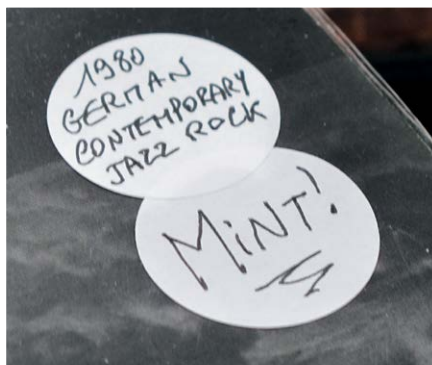 1980
GERMAN
CONTEMPORARY
JAZZ ROCK
MiNT!